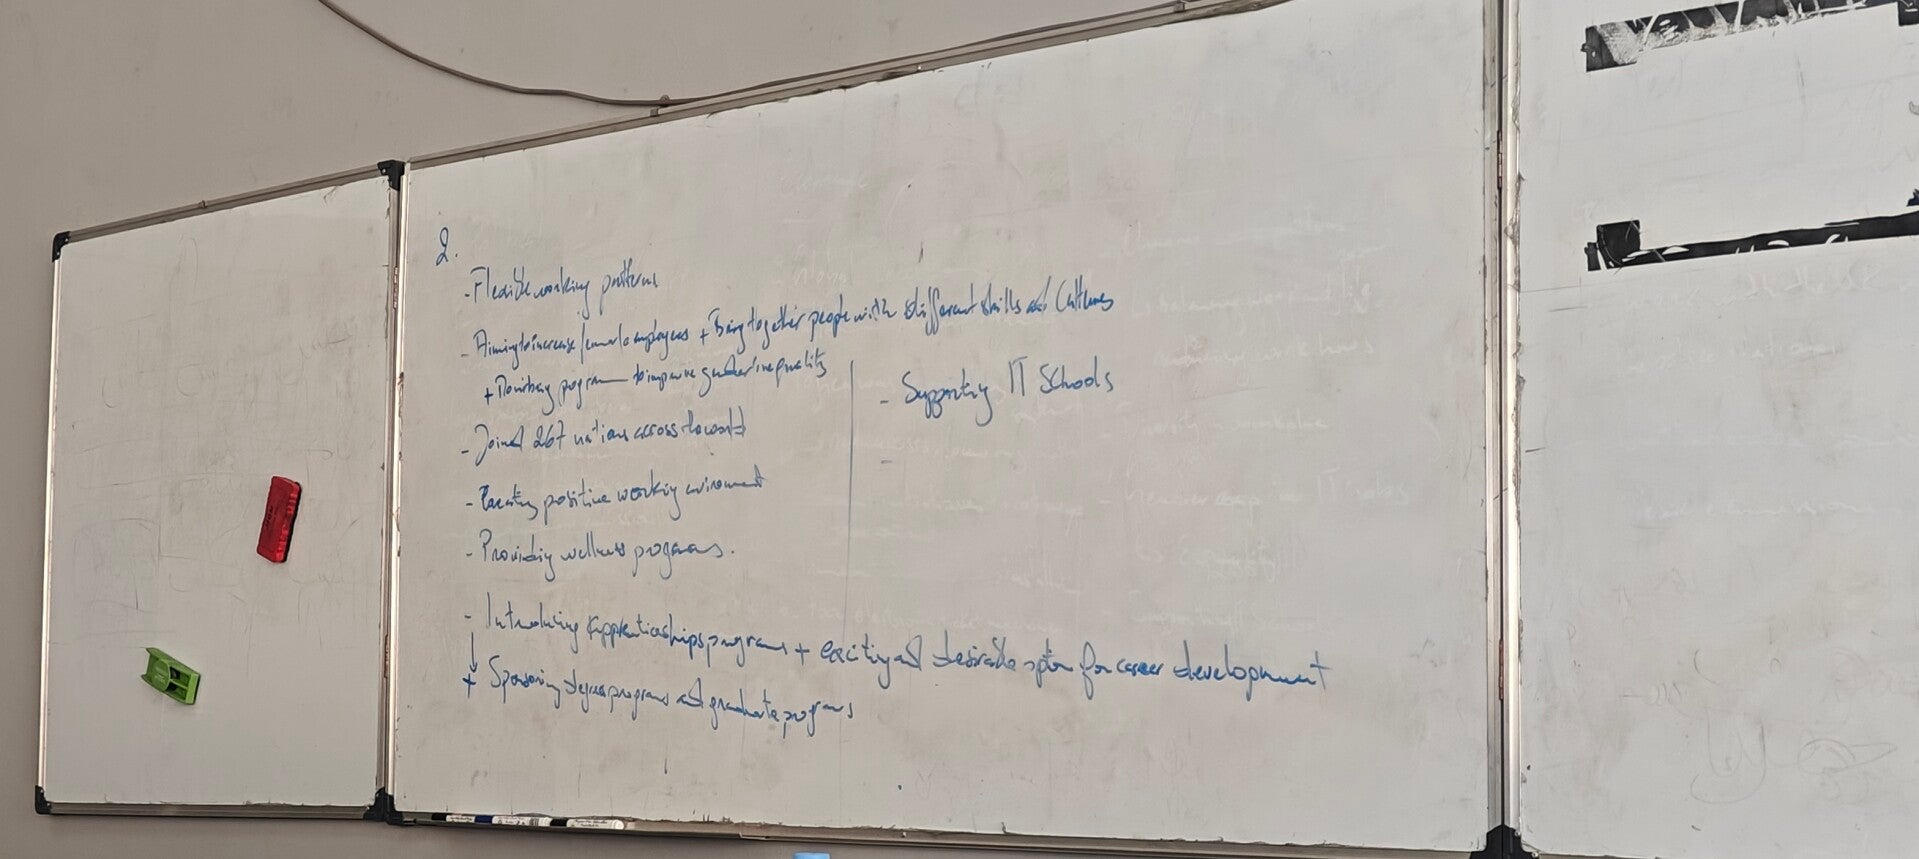 2.
- Flexible working patterns
- Aiming to increase female employees + Bring together people with different skills and Cultures
+ program to improve gender inequality
- Supporting IT Schools
- Joined 267 nations across the world
-
- Creating positive working enviroment
- Providing wellness programs.
- Introducing apprenticeships programs + exciting and desirable option for career development
+ Sponsoring degree programs and graduate programs